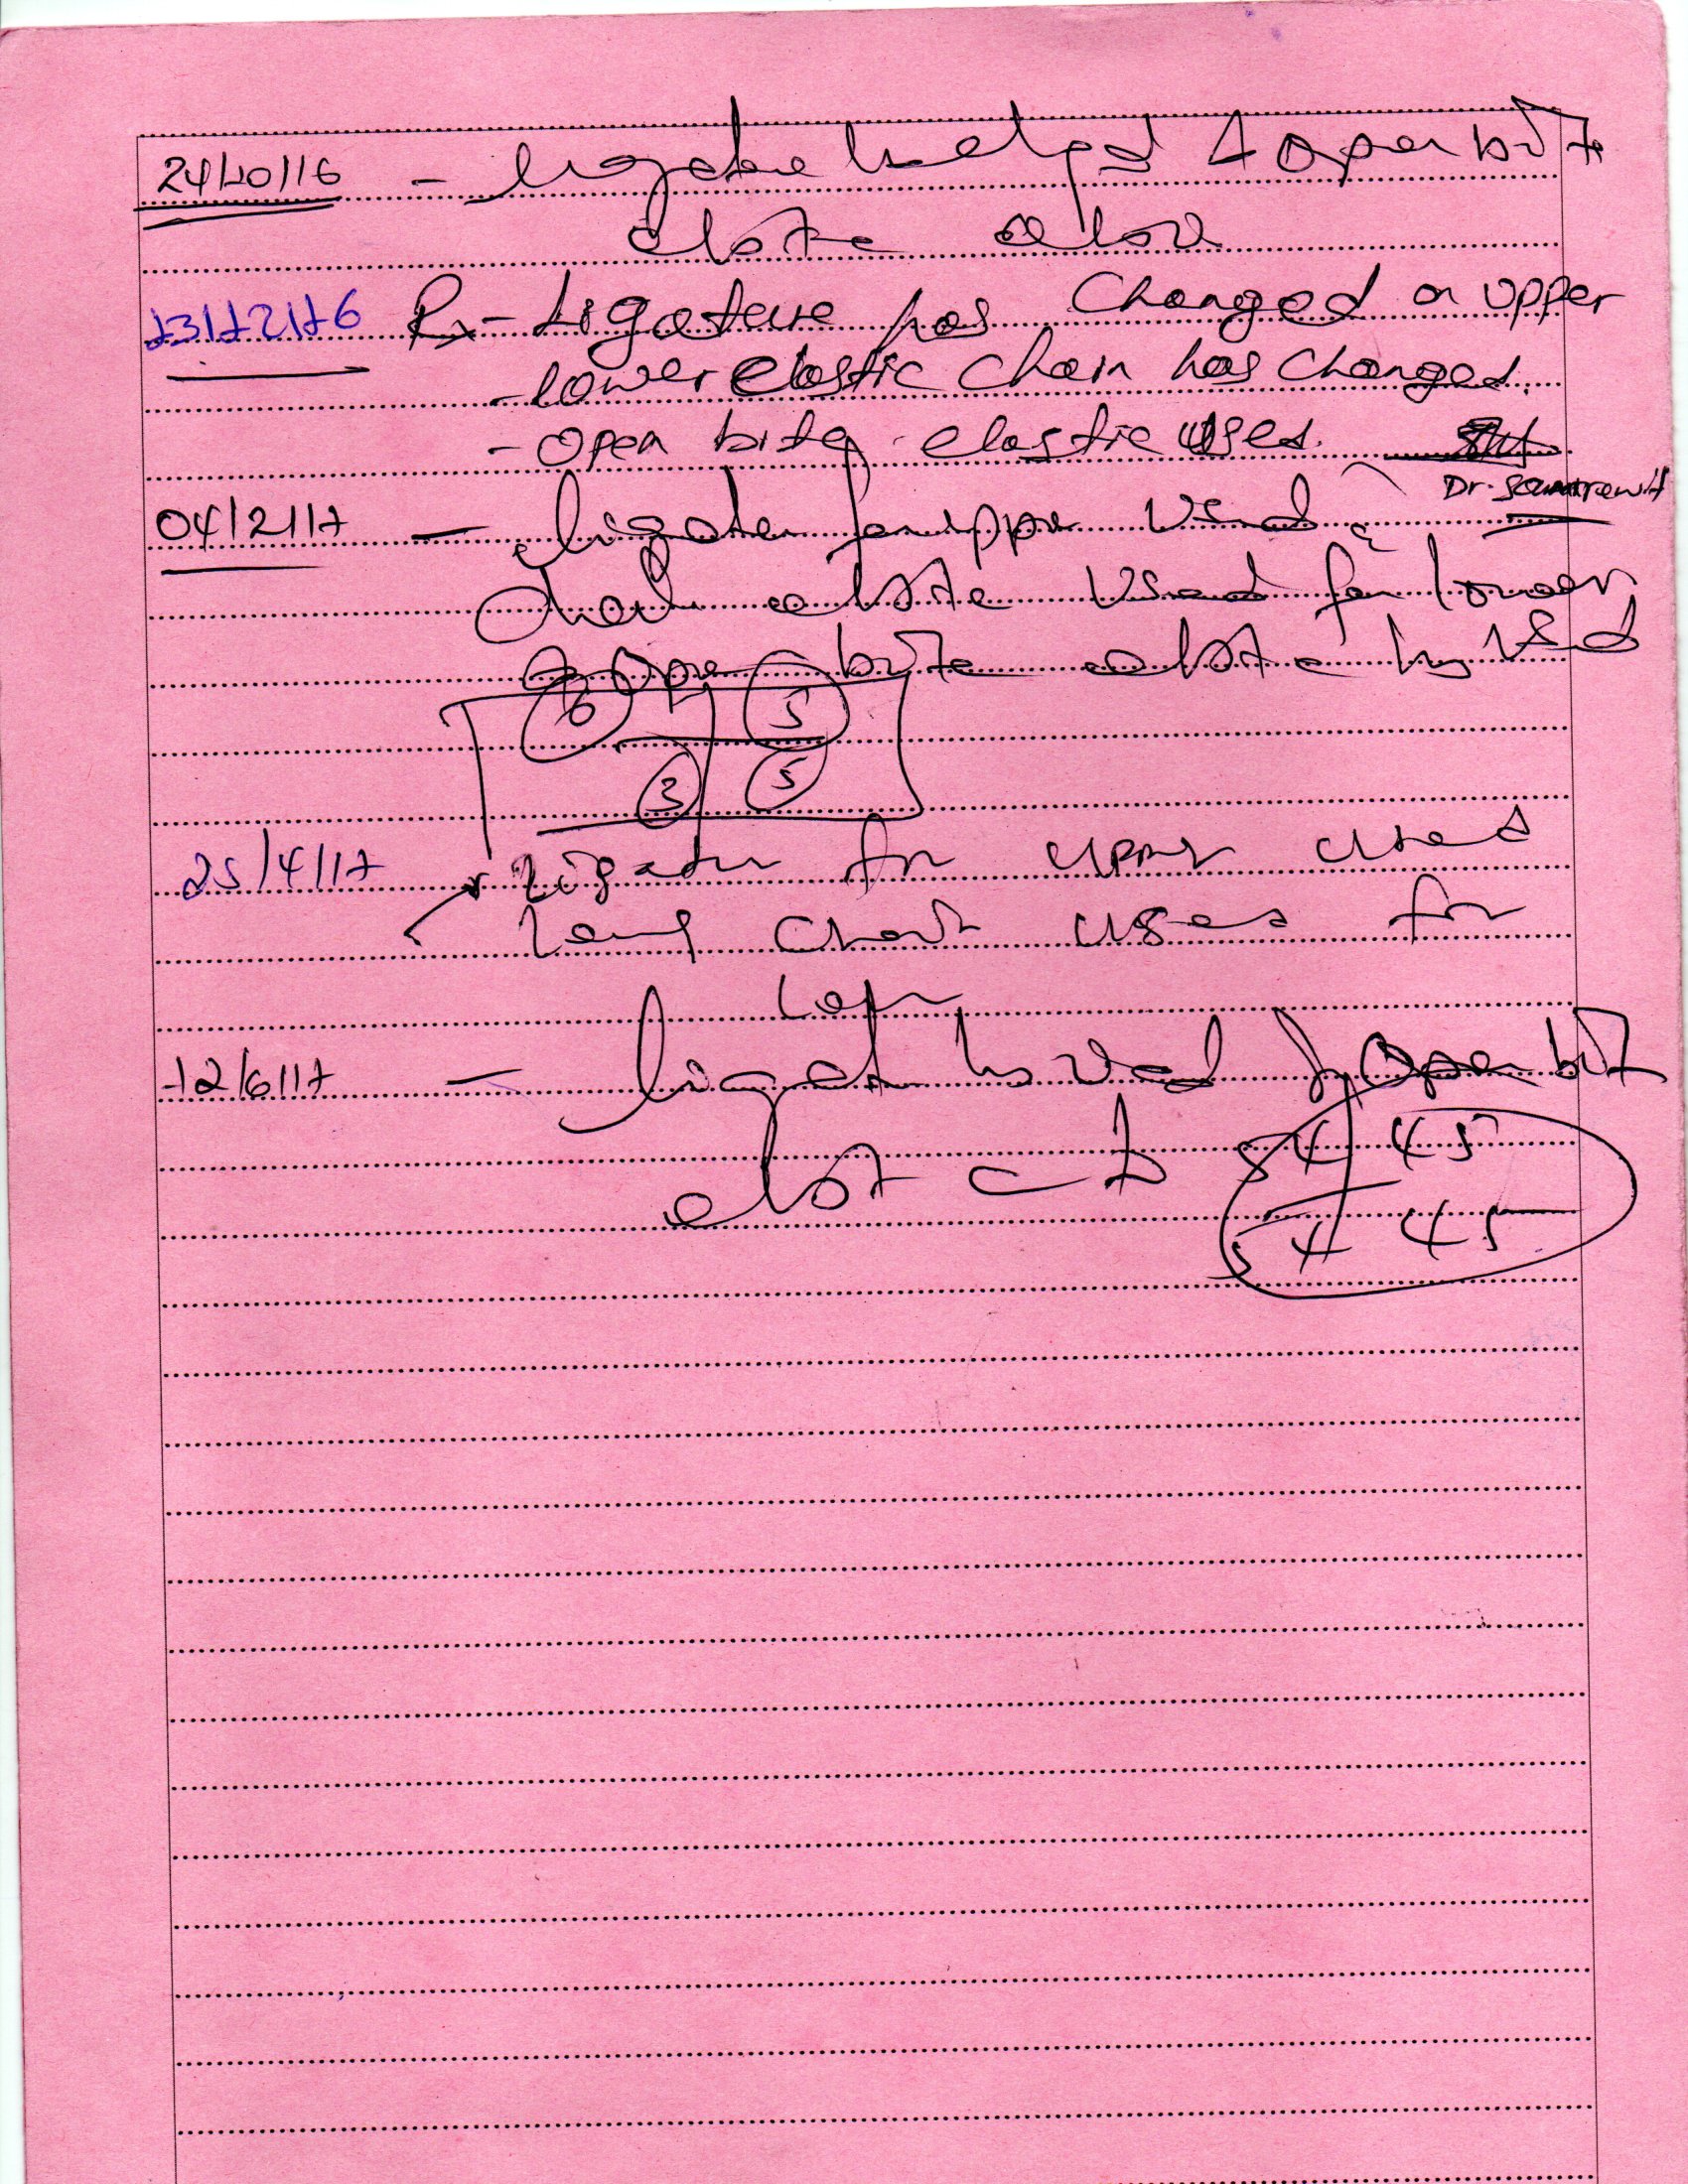 24/10/16 - & open bite
elastic also
13/12/16 Rx - Ligature has Changed on upper
- lower elastic chain has changed.
- open bite elastic used.
Dr.
04/2/17 - ligature for upper used &
chain elastic used for lower
& open bite elastic is used
6 5
3 5
25/4/17 ligatur for upper used
long chain used for
low
12/6/17 - ligat is used & open bit
elast
54 45
54 45